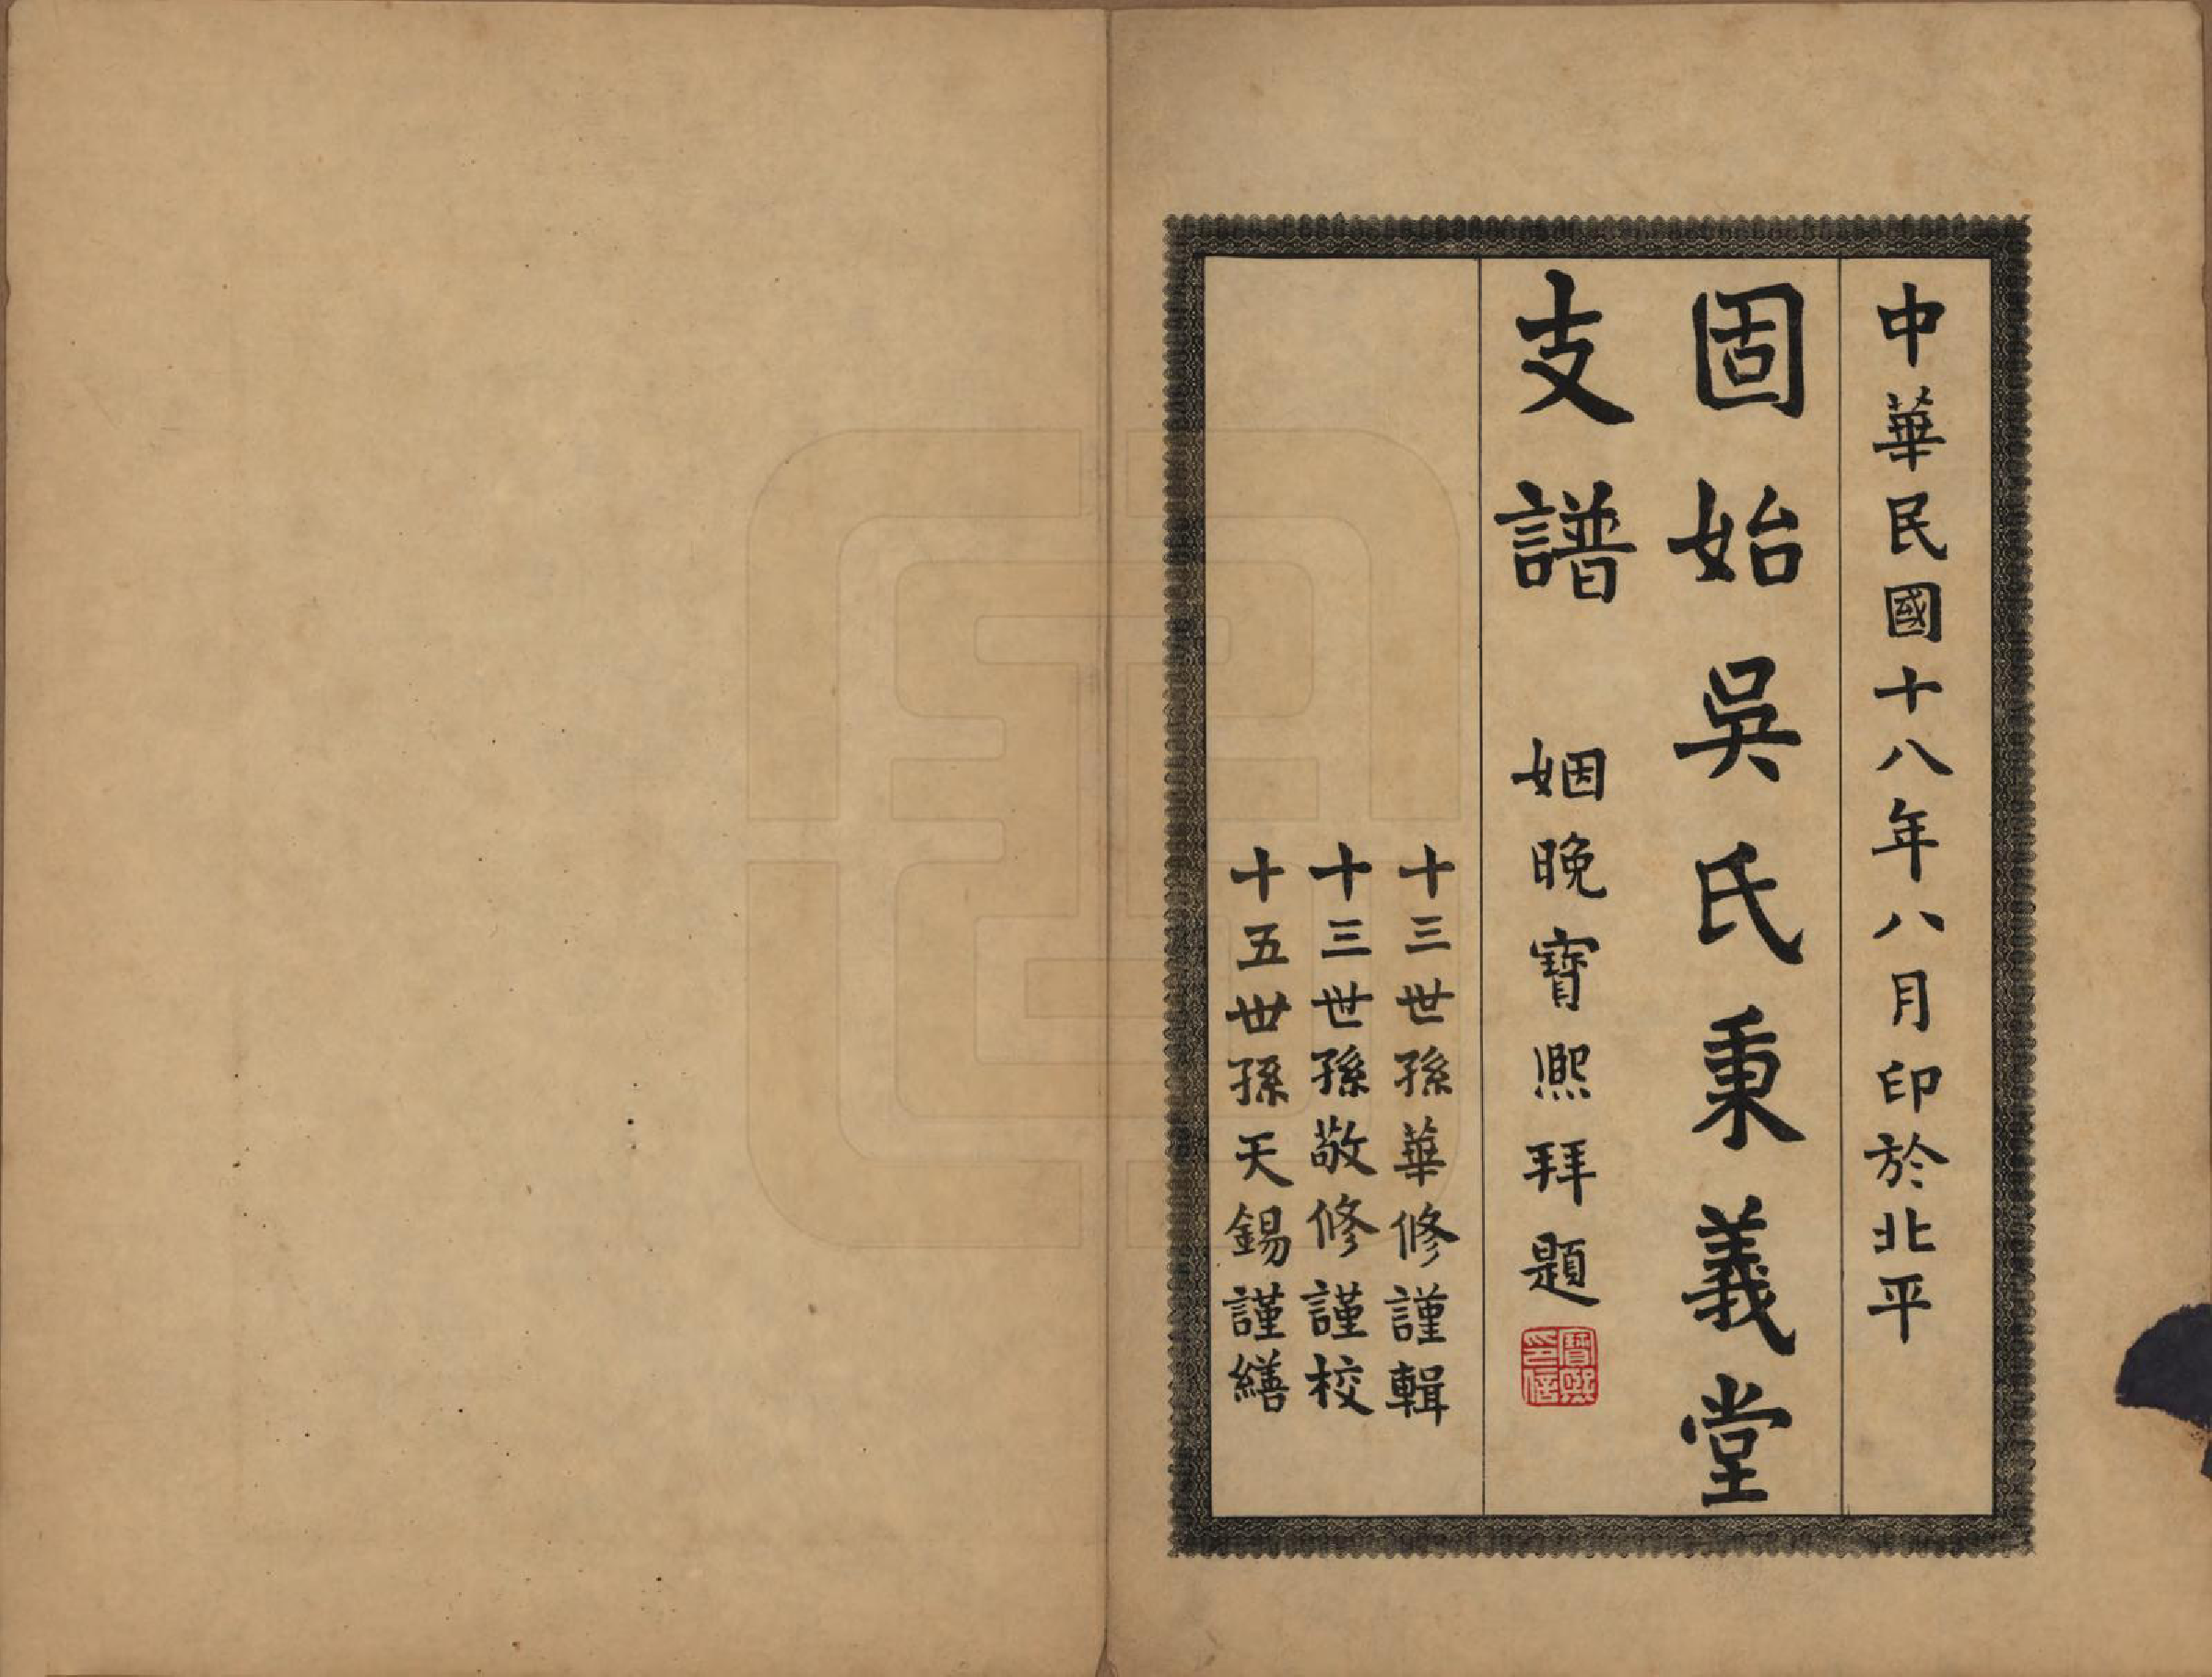 中華民國十八年八月印於北平
固始吳氏秉義堂
支譜
姻晚寶熙拜題
寶熙
印信
十三世孫華修謹輯
十三世孫敬修謹校
十五世孫天錫謹繕